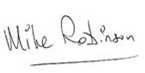 Mike Robinson